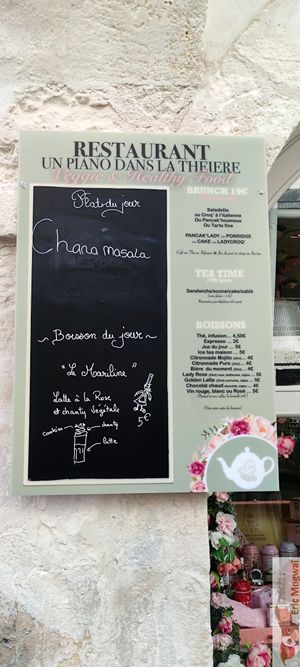 RESTAURANT
UN PIANO DANS LA THÉIÈRE
Veggie & Healthy Food
Plat du jour
Chana masala
~ Boisson du jour ~
"Le Mariline"
Latte à la Rose
et chanty végétale
5€
cookies
chanty
latte
BRUNCH 19€
Saladette
ou Croq' à l'italienne
ou Pancak'houmous
ou Tarte fine
PANCAK'LADY ou PORRIDGE
ou CAKE ou LADYCROQ'
TEA TIME
Sandwichs/scone/cake/sablé
BOISSONS
Thé, infusion... 4,50€
Expresso ... 2€
Jus du jour ... 5€
Ice tea maison ... 5€
Citronnade Mojito .... 5€
Citronnade Pure ... 4€
Bière du moment ... 4€
Lady Rose
Golden Latte
Chocolat chaud
Vin rouge, blanc ou Rosé ... 5€
Eric Mogwai